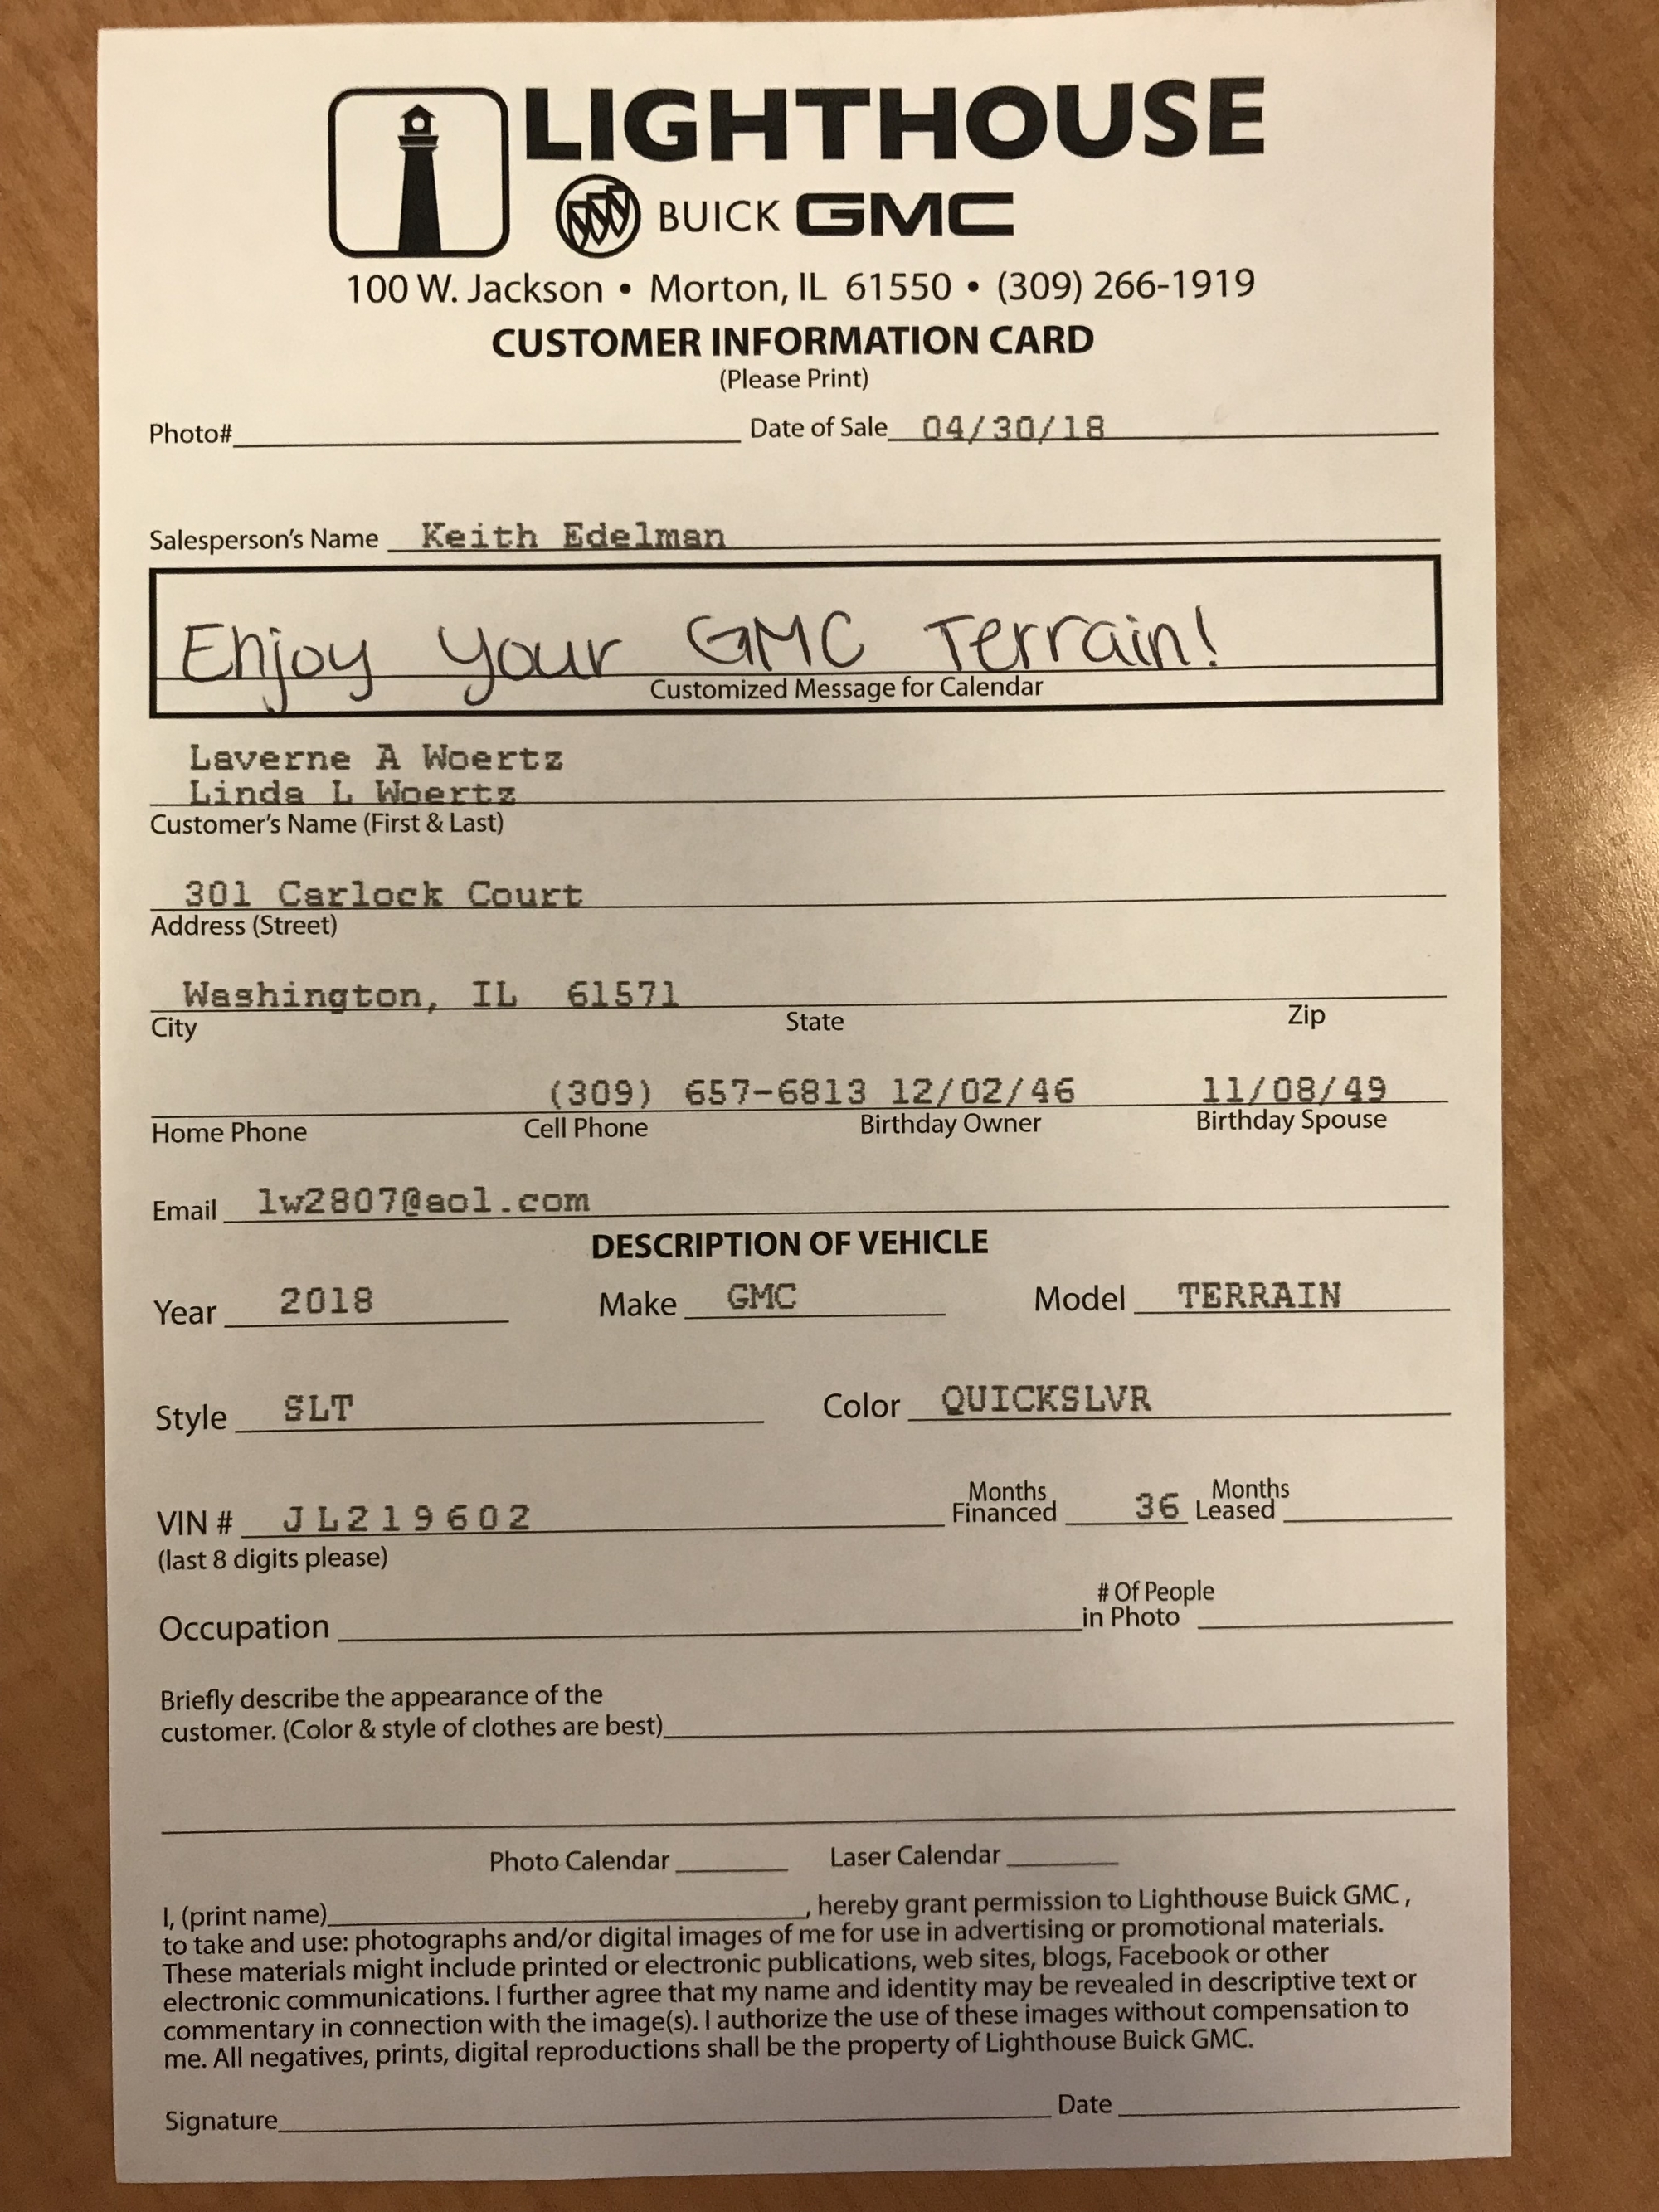 LIGHTHOUSE
BUICK GMC
100 W. Jackson • Morton, IL 61550 • (309) 266-1919
CUSTOMER INFORMATION CARD
(Please Print)
Photo# Date of Sale 04/30/18
Salesperson's Name Keith Edelman
Enjoy your GMC Terrain!
Customized Message for Calendar
Laverne A Woertz
Linda L Woertz
Customer's Name (First & Last)
301 Carlock Court
Address (Street)
Washington, IL 61571
City State Zip
(309) 657-6813 12/02/46 11/08/49
Home Phone Cell Phone Birthday Owner Birthday Spouse
Email lw2807@aol.com
DESCRIPTION OF VEHICLE
Year 2018 Make GMC Model TERRAIN
Style SLT Color QUICKSLVR
Months Months
VIN # JL219602 Financed 36 Leased
(last 8 digits please)
# Of People
Occupation in Photo
Briefly describe the appearance of the
customer. (Color & style of clothes are best)
Photo Calendar Laser Calendar
I, (print name) , hereby grant permission to Lighthouse Buick GMC ,
to take and use: photographs and/or digital images of me for use in advertising or promotional materials.
These materials might include printed or electronic publications, web sites, blogs, Facebook or other
electronic communications. I further agree that my name and identity may be revealed in descriptive text or
commentary in connection with the image(s). I authorize the use of these images without compensation to
me. All negatives, prints, digital reproductions shall be the property of Lighthouse Buick GMC.
Signature Date